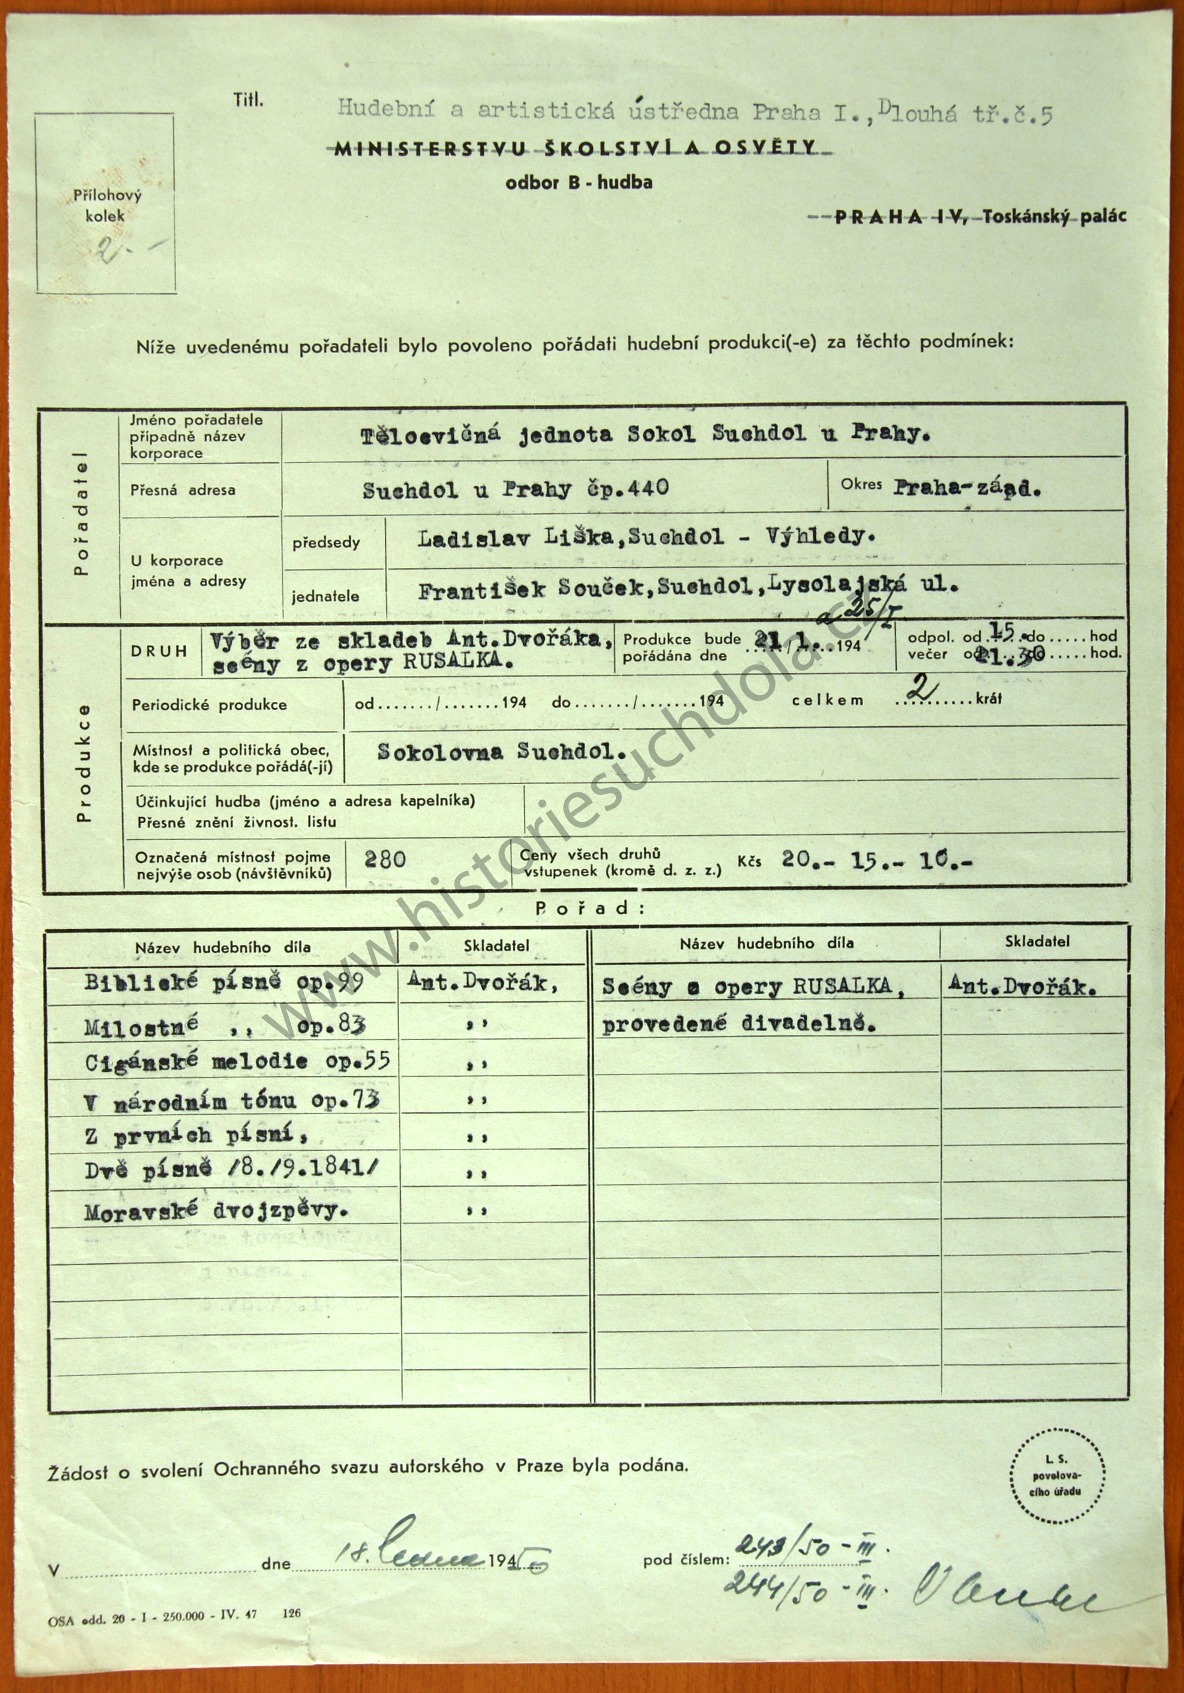 Titl.
Hudební a artistická ústředna Praha I., Dlouhá tř.č.5
MINISTERSTVU ŠKOLSTVÍ A OSVĚTY
odbor B - hudba
PRAHA IV, Toskánský palác
Přílohový
kolek
2.-
Níže uvedenému pořadateli bylo povoleno pořádati hudební produkci(-e) za těchto podmínek:
Pořadatel
Jméno pořadatele
případně název
korporace
Tělocvičná jednota Sokol Suchdol u Prahy.
Přesná adresa
Suchdol u Prahy čp.440
Okres Praha-západ.
U korporace
jména a adresy
předsedy
Ladislav Liška,Suchdol - Výhledy.
jednatele
František Souček,Suchdol,Lysolajská ul.
a 25/I
Produkce
DRUH
Výběr ze skladeb Ant.Dvořáka,
scény z opery RUSALKA.
Produkce bude
pořádána dne
21./1. 194
odpol. od 15. do ..... hod
večer od do ..... hod.
21.30
Periodické produkce
od ......./.......194 do ......./.......194 celkem 2 krát
Místnost a politická obec,
kde se produkce pořádá(-jí)
Sokolovna Suchdol.
Účinkující hudba (jméno a adresa kapelníka)
Přesné znění živnost. listu
Označená místnost pojme
nejvýše osob (návštěvníků)
280
Ceny všech druhů
vstupenek (kromě d. z. z.)
Kčs 20.- 15.- 10.-
Pořad:
Název hudebního díla Skladatel Název hudebního díla Skladatel
Biblické písně op.99 Ant.Dvořák, Scény s opery RUSALKA, Ant.Dvořák.
Milostné ,, op.83 ,, provedené divadelně.
Cigánské melodie op.55 ,,
V národním tónu op.73 ,,
Z prvních písní, ,,
Dvě písně /8./9.1841/ ,,
Moravské dvojzpěvy. ,,
Žádost o svolení Ochranného svazu autorského v Praze byla podána.
L. S.
povolova-
cího úřadu
V ........ dne 18. ledna 1950
pod číslem: 243/50 - III.
244/50 - III.
OSA odd. 20 - I - 250.000 - IV. 47 126
www.historiesuchdola.cz